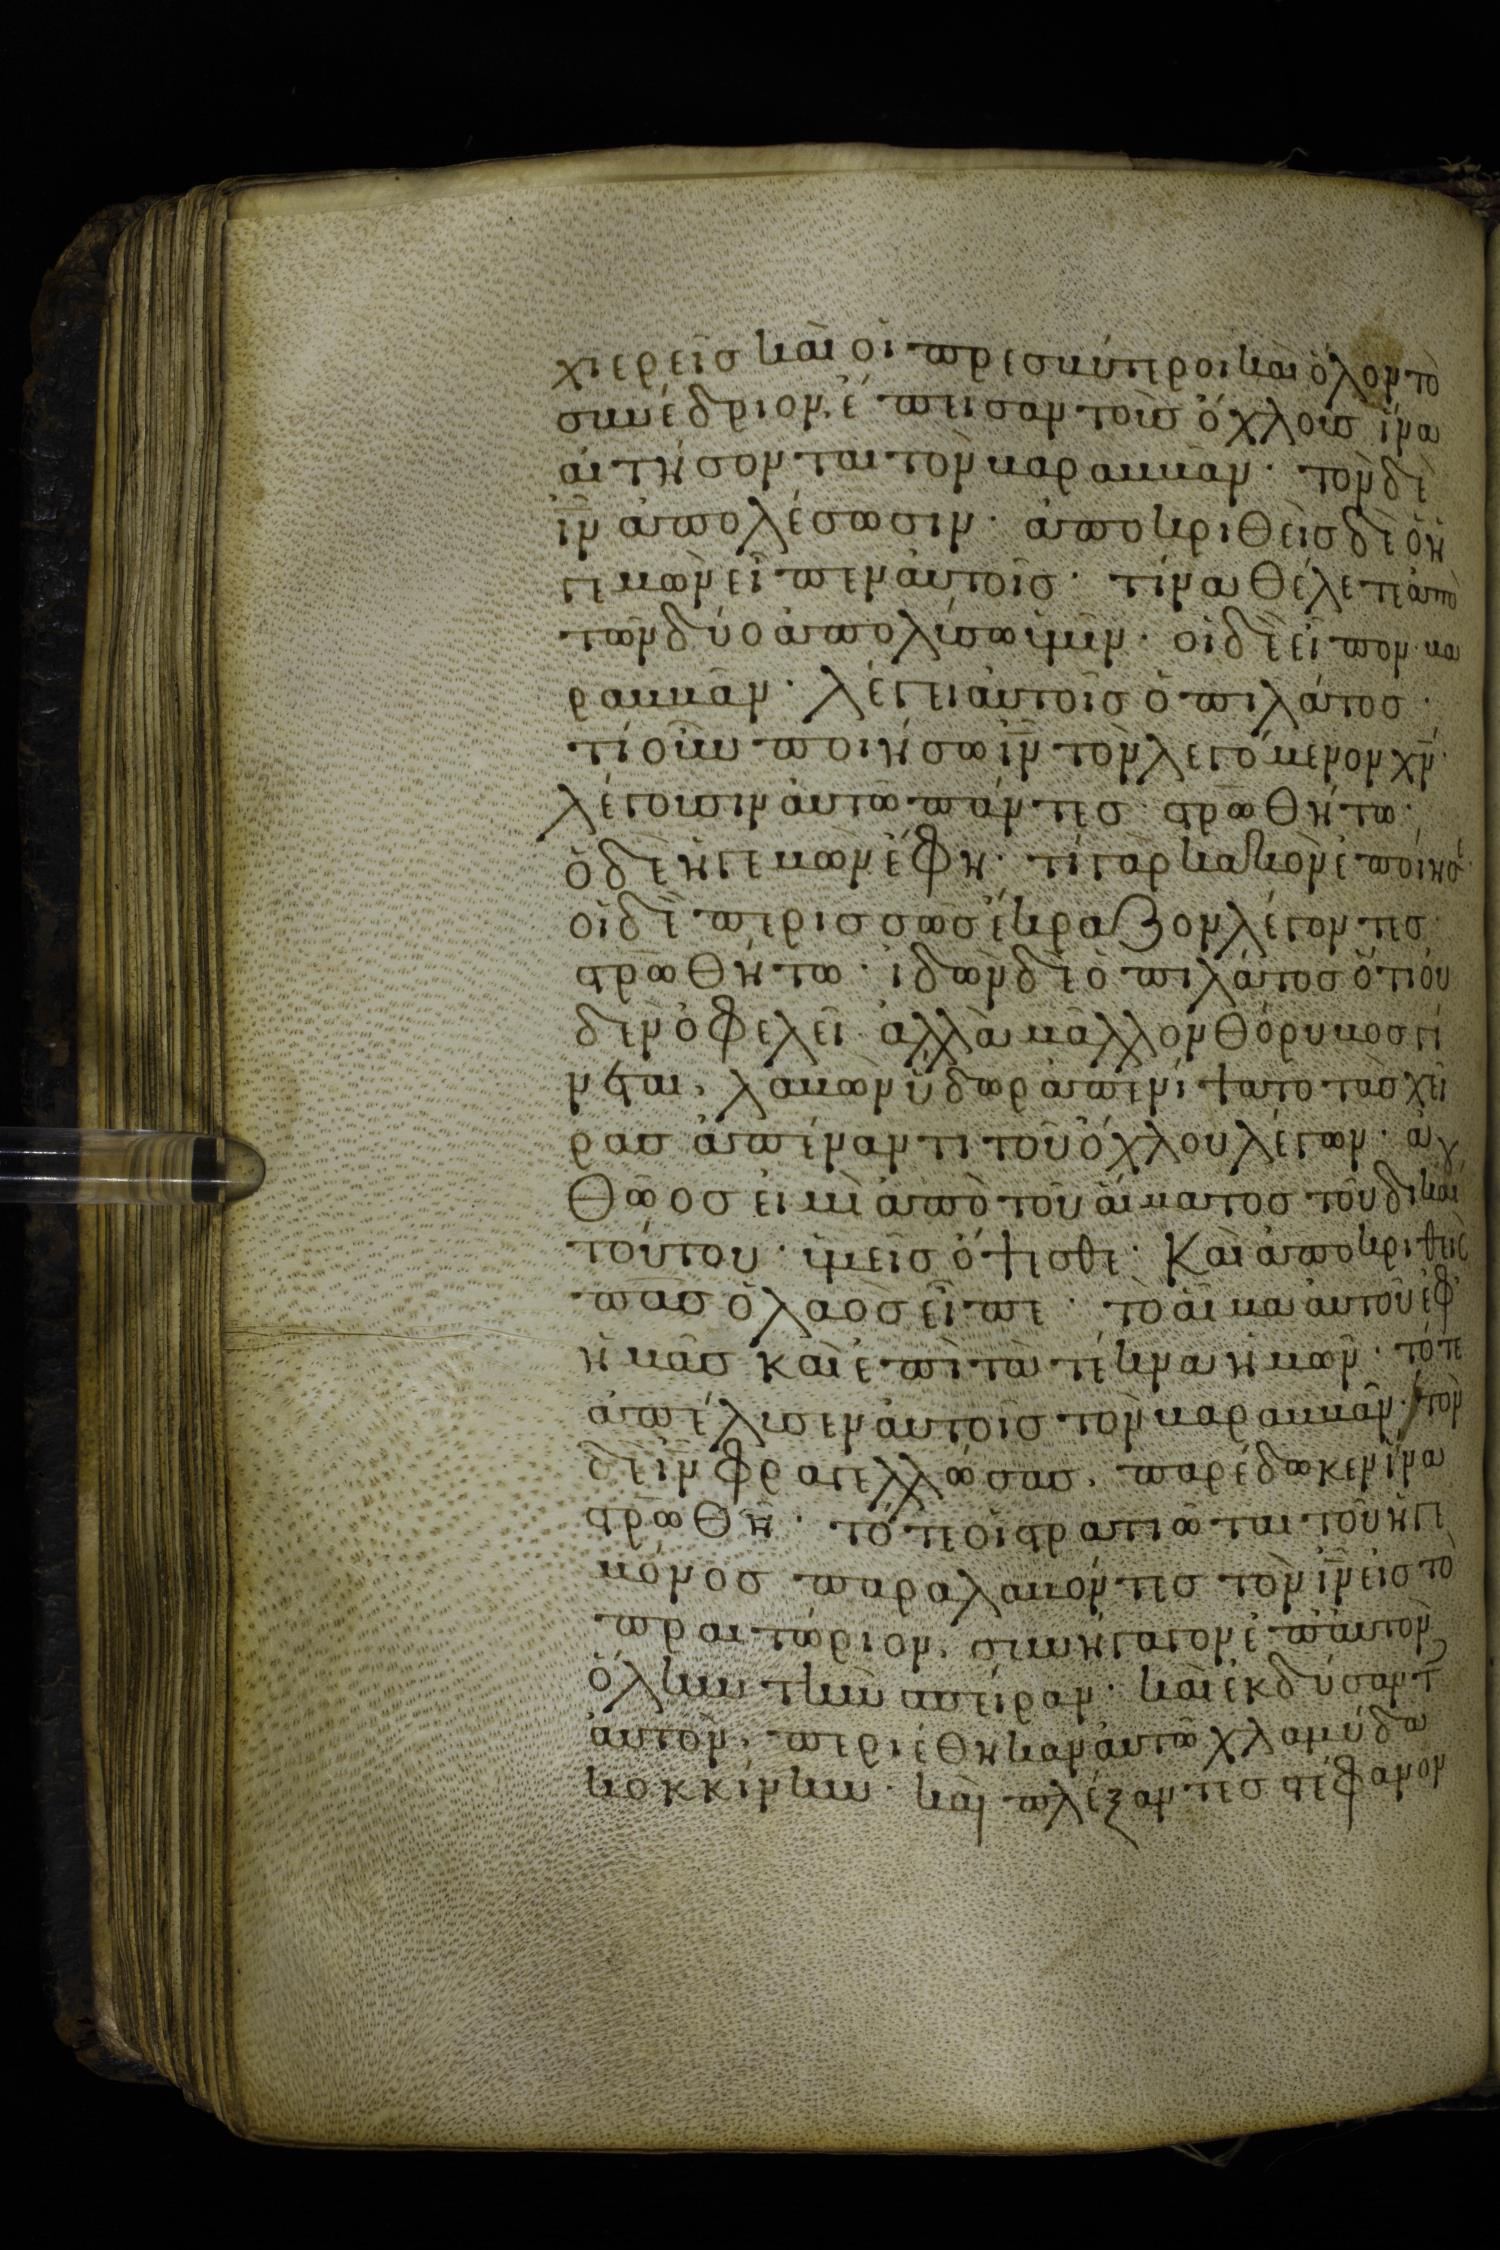 χιερεῖς καὶ οἱ πρεσβύτεροι καὶ ὅλον τὸ
συνέδριον ἔπεισαν τοὺς ὄχλους ἵνα
αἰτήσονται τὸν βαραββᾶν· τὸν δὲ
ἰ̅ν̅ ἀπολέσωσιν· ἀποκριθεὶς δὲ ὁ ἡ
γεμὼν εἶπεν αὐτοῖς· τίνα θέλετε ἀπὸ
τῶν δύο ἀπολύσω ὑμῖν· οἱ δὲ εἶπον· βα
ραββᾶν· λέγει αὐτοῖς ὁ πιλάτος·
τί οὖν ποιήσω ἰ̅ν̅ τὸν λεγόμενον χ̅ν̅·
λέγουσιν αὐτῷ πάντες· σ̅τ̅ρ̅ωθήτω·
ὁ δὲ ἡγεμὼν ἔφη· τί γὰρ κακὸν ἐποίησ·
οἱ δὲ περισσῶς ἔκραζον λέγοντες·
σ̅τ̅ρ̅ωθήτω· ἰδὼν δὲ ὁ πιλάτος ὅτι οὐ
δὲν ὀφελεῖ ἀλλὰ μᾶλλον θόρυβος γί
νεται, λαβὼν ὕδωρ ἀπενίψατο τὰς χεῖ
ρας ἀπέναντι τοῦ ὄχλου λέγων· ἀ
θῶος εἰμι ἀπὸ τοῦ αἵματος τοῦ δικαίου
τούτου· ὑμεῖς ὄψεσθε· Καὶ ἀποκριθεὶς
πᾶς ὁ λαὸς εἶπε· τὸ αἷμα αὐτοῦ ἐφ
ἡμᾶς καὶ ἐπὶ τὰ τέκνα ἡμῶν· τότε
ἀπέλυσεν αὐτοῖς τὸν βαραββᾶν· τὸν
δὲ ἰ̅ν̅ φραγελλώσας, παρέδωκεν ἵνα
σ̅τ̅ρ̅ωθῇ· τότε οἱ στρατιῶται τοῦ ἡγε
μόνος παραλαβόντες τὸν ἰ̅ν̅ εἰς τὸ
πραιτώριον, συνήγαγον ἐπ' αὐτὸν
ὅλην τὴν σπεῖραν· καὶ ἐκδύσαντες
αὐτὸν, περιέθηκαν αὐτῷ χλαμύδα
κοκκίνην· καὶ πλέξαντες στέφανον